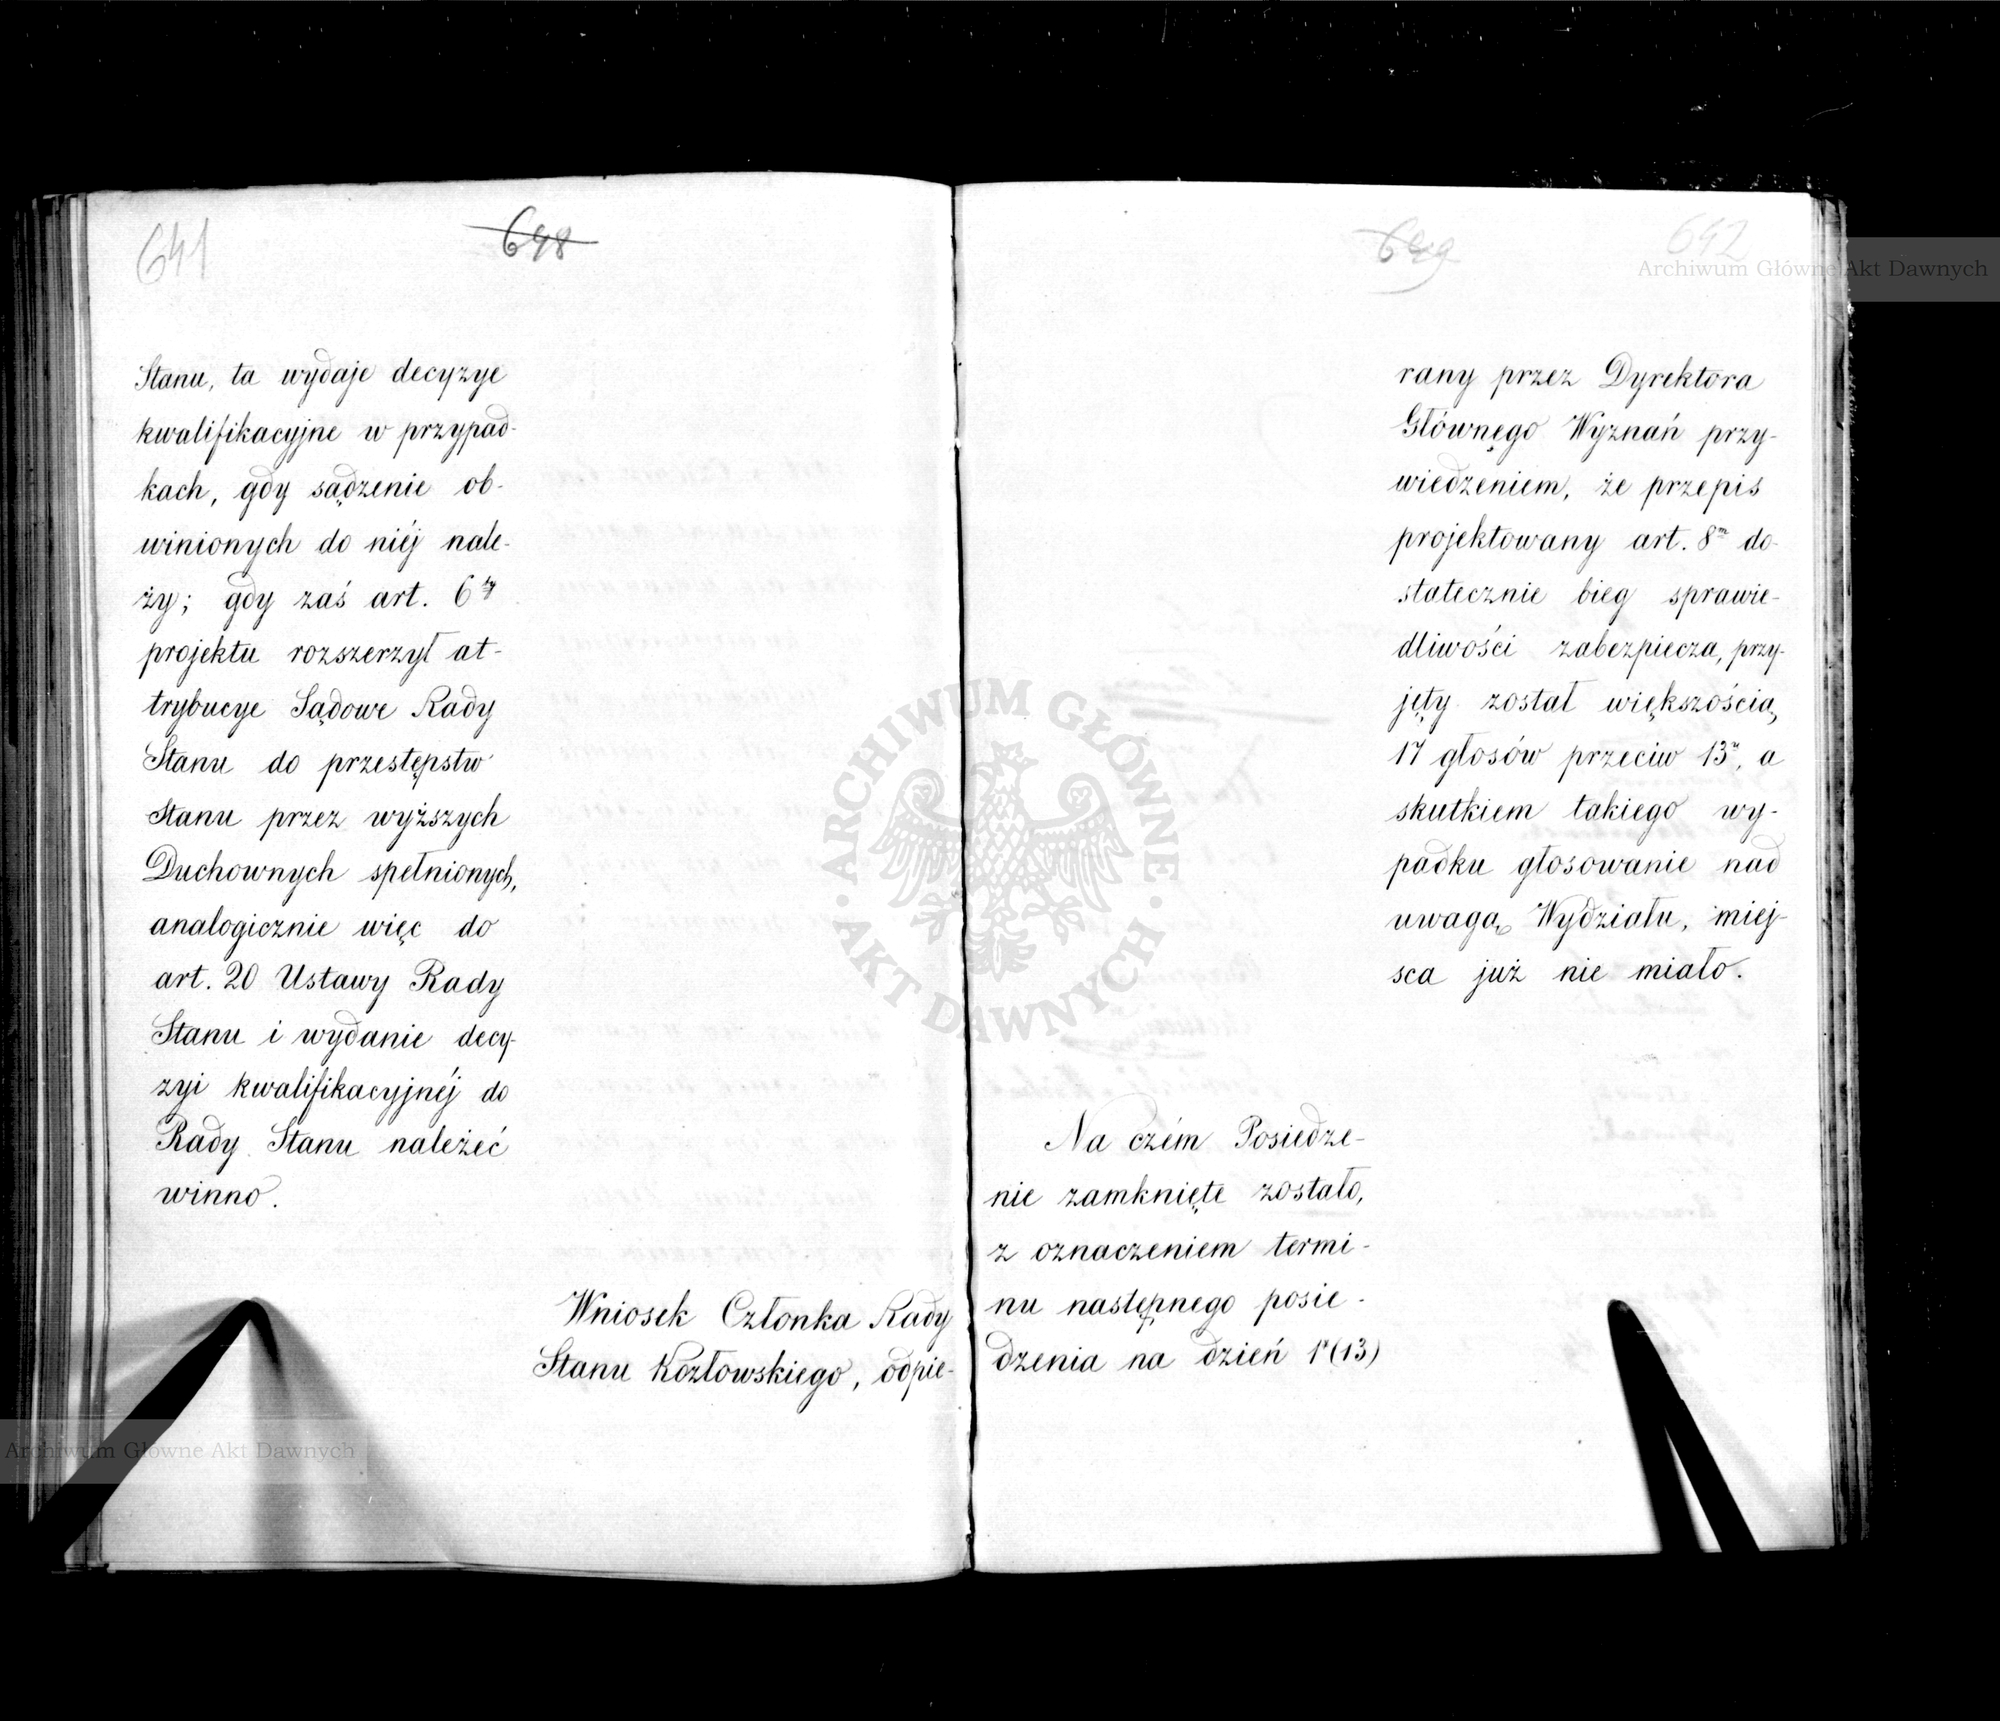 641
648
Stanu, ta wydaje decyzye
kwalifikacyjne w przypad-
kach, gdy sądzenie ob-
winionych do niéj nale-
ży; gdy zaś art. 6ty
projektu rozszerzył at-
trybucye Sądowe Rady
Stanu do przestępstw
Stanu przez wyższych
Duchownych spełnionych,
analogicznie więc do
art. 20 Ustawy Rady
Stanu i wydanie decy-
zyi kwalifikacyjnéj do
Rady Stanu należeć
winno.
Wniosek Członka Rady
Stanu Kozłowskiego, odpie-
649
642
rany przez Dyrektora
Głównego Wyznań przy-
wiedzeniem, że przepis
projektowany art. 8m do-
statecznie bieg sprawie-
dliwości zabezpiecza, przy-
jęty został większością
17 głosów przeciw 13u, a
skutkiem takiego wy-
padku głosowanie nad
uwagą Wydziału, miej-
sca już nie miało.
Na czém Posiedze-
nie zamknięte zostało,
z oznaczeniem termi-
nu następnego posie-
dzenia na dzień 1r (13)
Archiwum Główne Akt Dawnych
Archiwum Główne Akt Dawnych
ARCHIWUM GŁÓWNE
AKT DAWNYCH